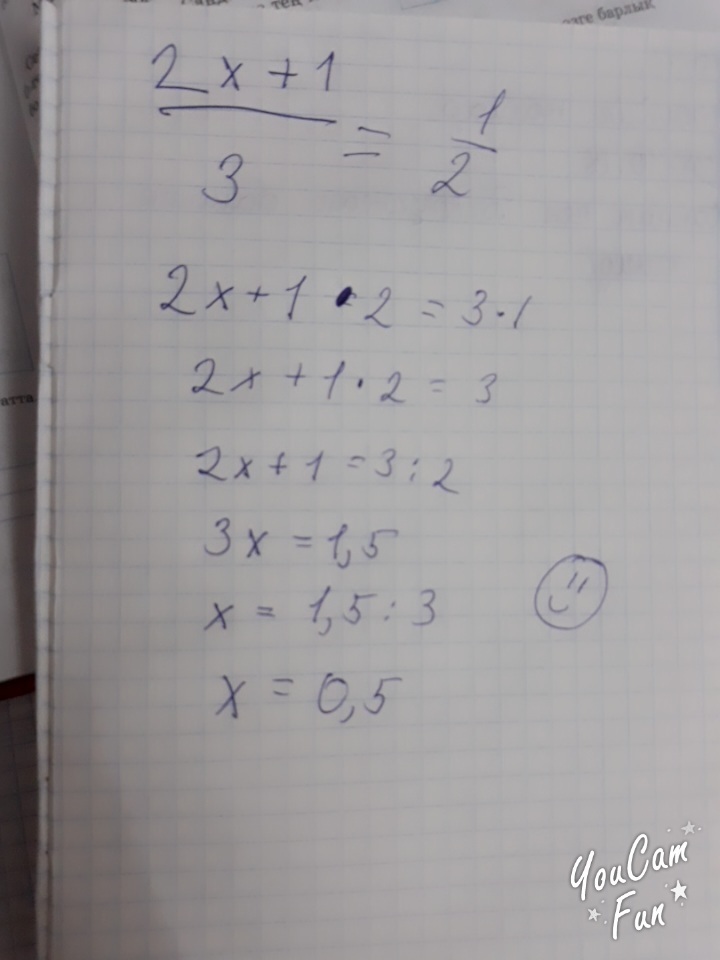 тең
езге барлық
2x+1
3
=
1
2
2x+1 • 2 = 3·1
2x+1·2 = 3
2x+1 = 3:2
3x = 1,5
x = 1,5:3
x = 0,5
атта
YouCam
Fun